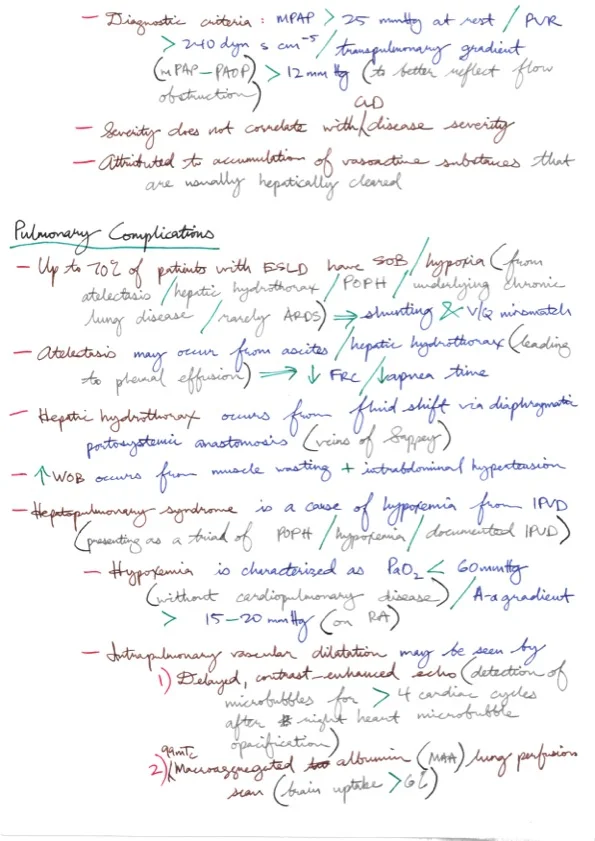 — Diagnostic criteria : MPAP > 25 mmHg at rest / PVR
> 240 dyn s cm⁻⁵ / transpulmonary gradient
(MPAP – PAOP) > 12 mm Hg (to better reflect flow
obstruction)
— Severity does not correlate with / CLD disease severity
— Attributed to accumulation of vasoactive substances that
are usually hepatically cleared
Pulmonary Complications
— Up to 70% of patients with ESLD have SOB / hypoxia (from
atelectasis / hepatic hydrothorax / POPH / underlying chronic
lung disease / rarely ARDS) ⇒ shunting & V/Q mismatch
— Atelectasis may occur from ascites / hepatic hydrothorax (leading
to pleural effusion) ⇒ ↓ FRC / ↓ apnea time
— Hepatic hydrothorax occurs from fluid shift via diaphragmatic
portosystemic anastomosis (veins of Sappey)
— ↑ WOB occurs from muscle wasting + intrabdominal hypertension
— Hepatopulmonary syndrome is a cause of hypoxemia from IPVD
(presenting as a triad of POPH / hypoxemia / documented IPVD)
— Hypoxemia is characterized as PaO₂ < 60 mmHg
(without cardiopulmonary disease) / A-a gradient
> 15–20 mmHg (on RA)
— Intrapulmonary vascular dilatation may be seen by
1) Delayed, contrast-enhanced echo (detection of
microbubbles for > 4 cardiac cycles
after right heart microbubble
opacification)
2) 99mTc Macroaggregated albumin (MAA) lung perfusion
scan (brain uptake > 6%)